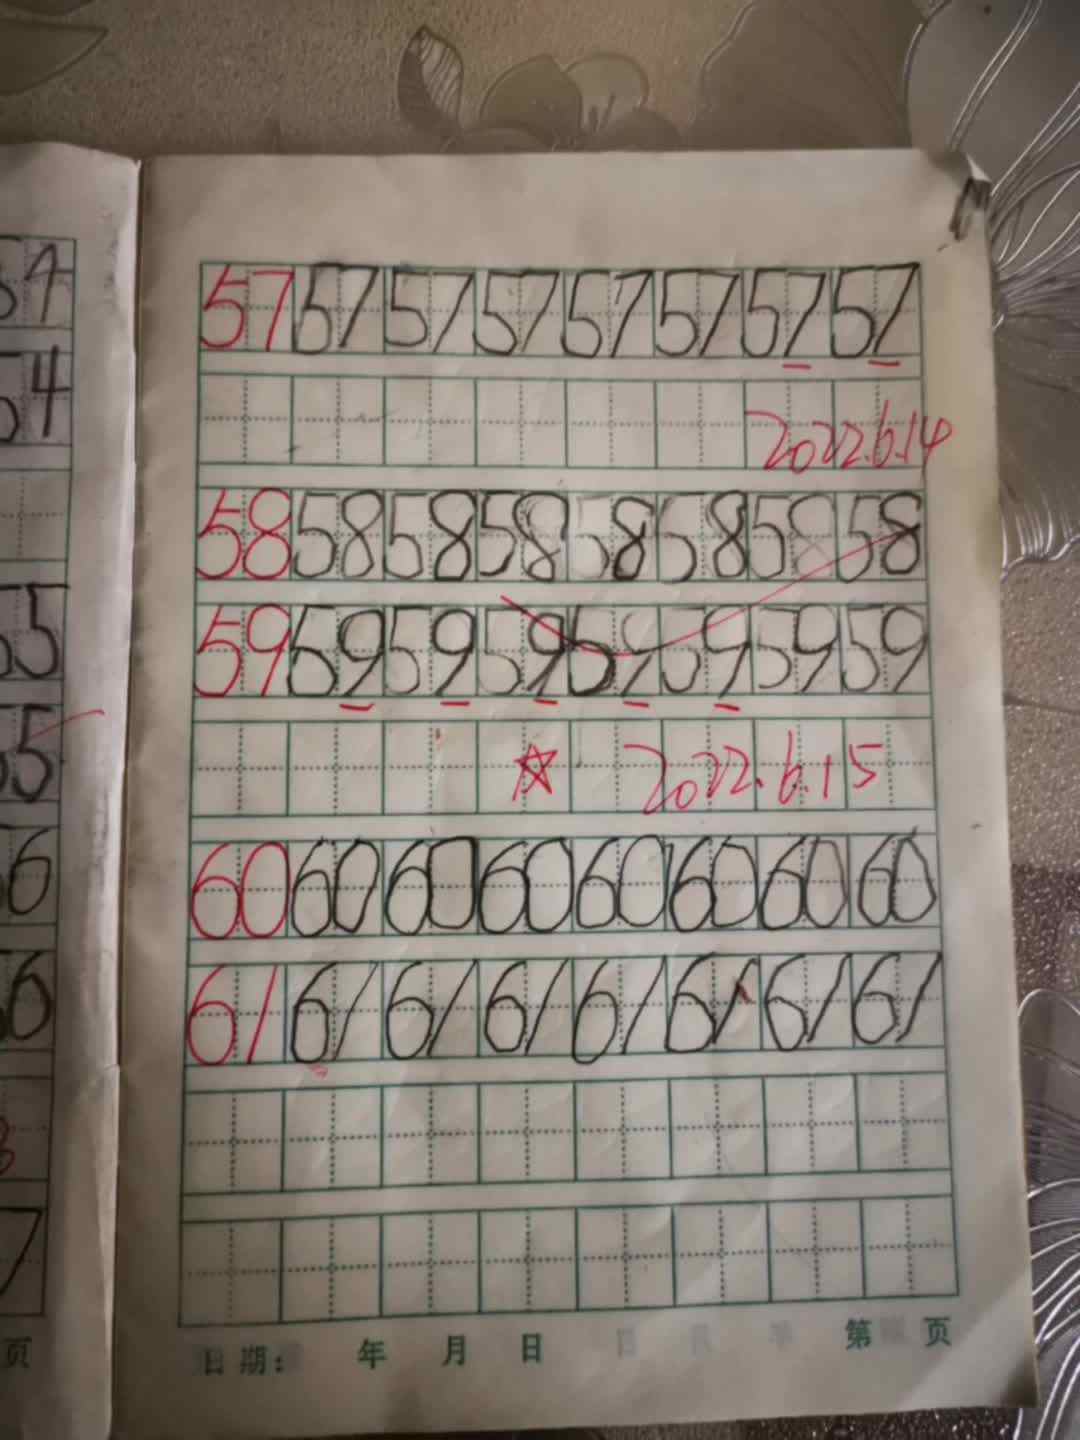 57 57 57 57 57 57 57 57
2022.6.14
58 58 58 58 58 58 58 58
59 59 59 59 59 59 59 59
☆ 2022.6.15
60 60 60 60 60 60 60 60
61 61 61 61 61 61 61 61
日期: 年 月 日 第 页
54
54
55
55
66
66
3
7
页